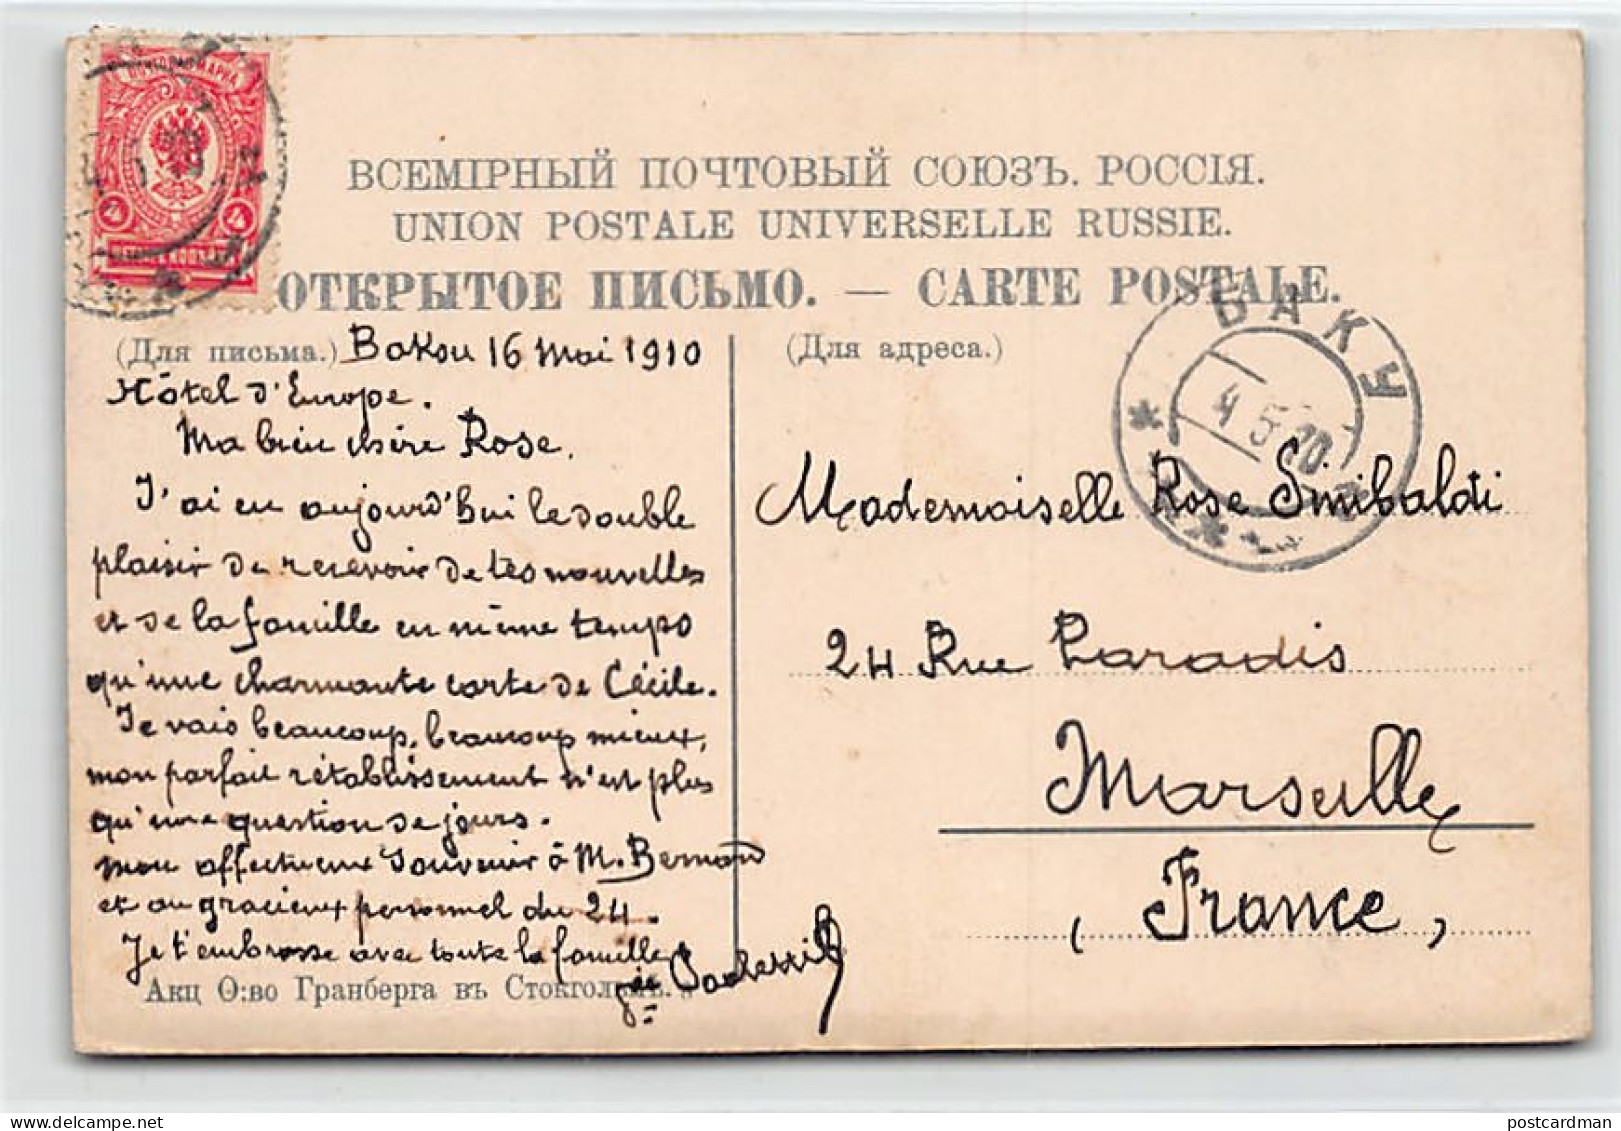 ПОЧТОВАЯ МАРКА
4 4
ВСЕМІРНЫЙ ПОЧТОВЫЙ СОЮЗЪ. РОССІЯ.
UNION POSTALE UNIVERSELLE RUSSIE.
ОТКРЫТОЕ ПИСЬМО. — CARTE POSTALE.
(Для письма.) Bakou 16 Mai 1910
Hôtel d'Europe.
Ma bien chère Rose.
J'ai eu aujourd'hui le double
plaisir de recevoir de tes nouvelles
et de la famille en même temps
qu'une charmante carte de Cécile.
Je vais beaucoup, beaucoup mieux,
mon parfait rétablissement n'est plus
qu'une question de jours.
Mon affectueux souvenir à M. Bernard
et au gracieux personnel du 24.
Je t'embrasse avec toute la famille
Акц О:во Гранберга въ Стокгольмѣ.
(Для адреса.)
БАКУ
4 5 10
Mademoiselle Rose Sinibaldi
24 Rue Paradis
Marseille
(France)
postcardman